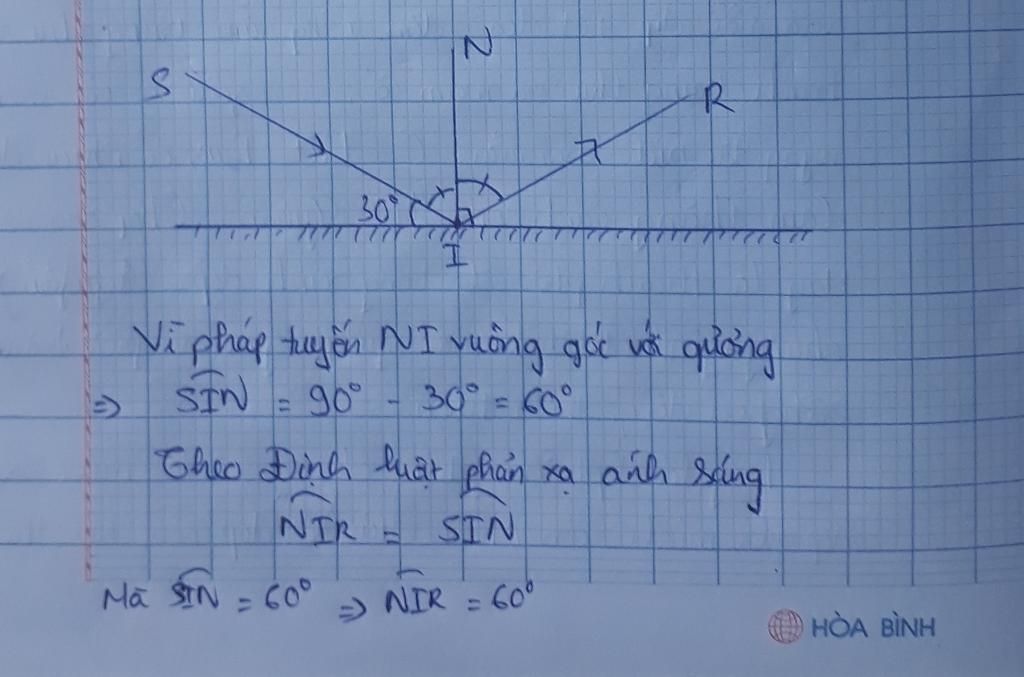 S
N
R
30°
I
Vì pháp tuyến NI vuông góc với gương
=> SIN = 90° - 30° = 60°
Theo Định luật phản xạ ánh sáng
NIR = SIN
Mà SIN = 60° => NIR = 60°
HÒA BÌNH